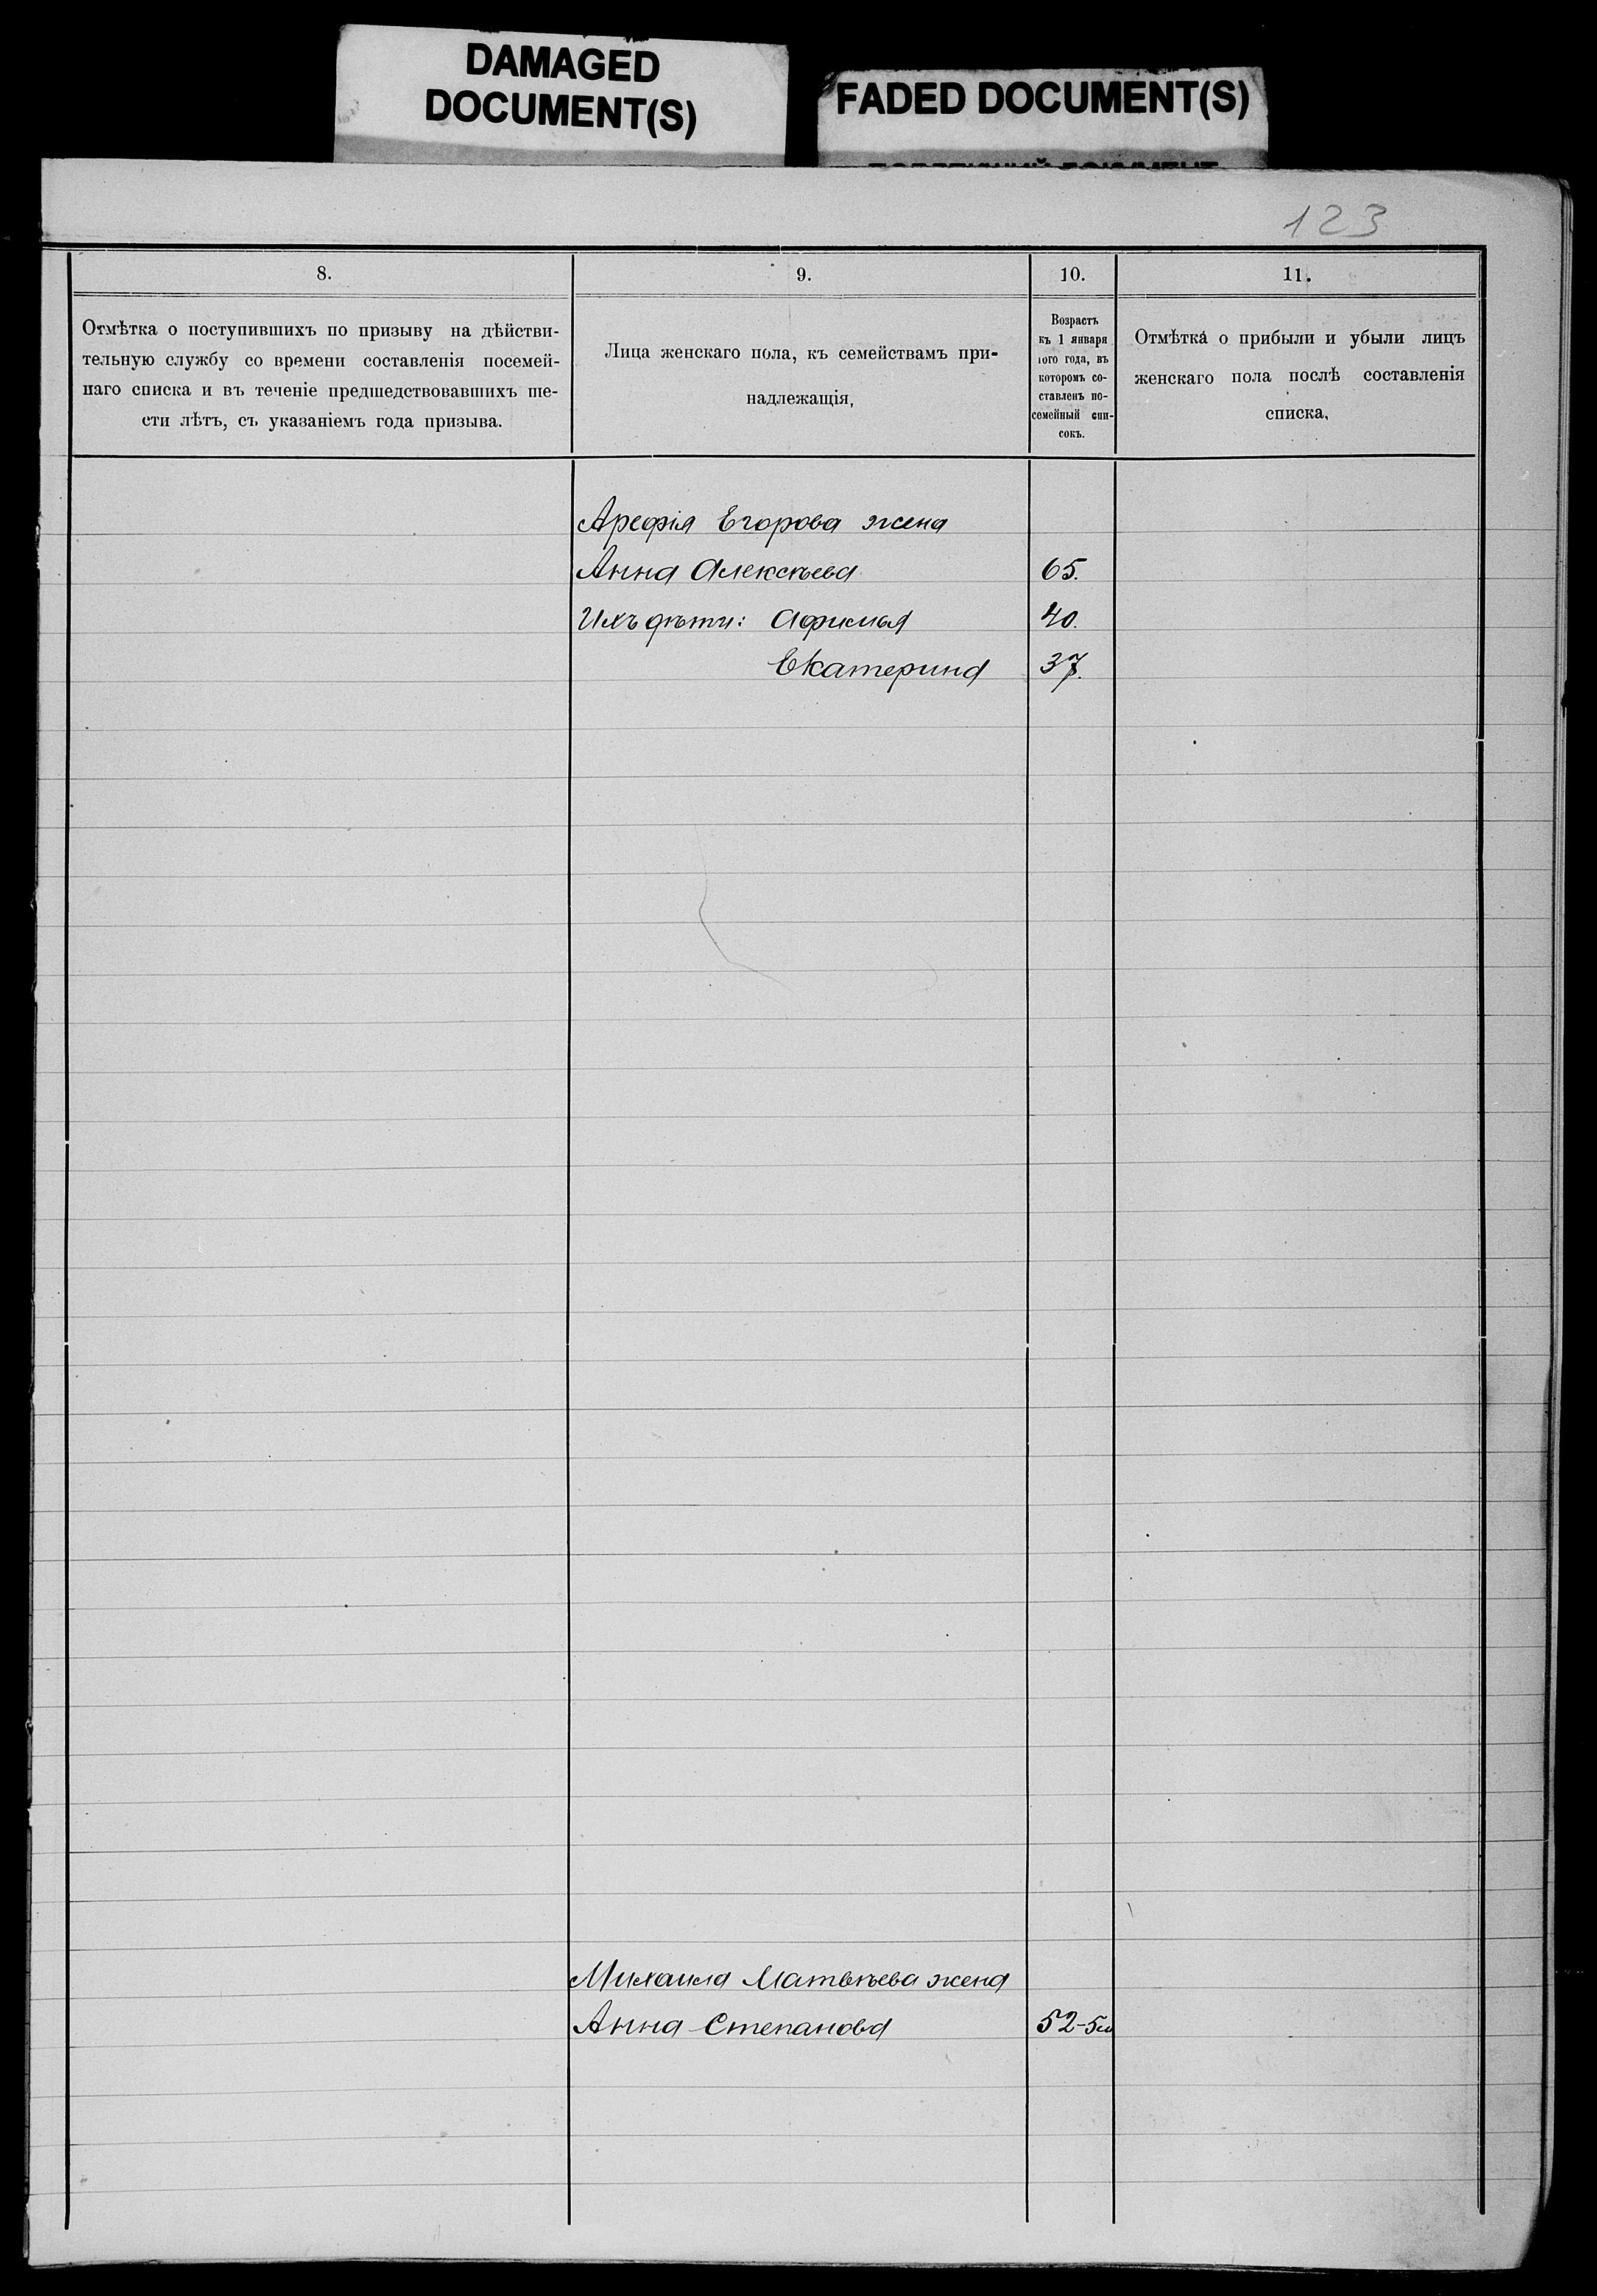 DAMAGED
DOCUMENT(S)
FADED DOCUMENT(S)
123
8.
Отмѣтка о поступившихъ по призыву на дѣйстви-
тельную службу со времени составленія посемей-
наго списка и въ теченіе предшедствовавшихъ ше-
сти лѣтъ, съ указаніемъ года призыва.
9.
Лица женскаго пола, къ семействамъ при-
надлежащія,
10.
Возрастъ
къ 1 января
того года, въ
которомъ со-
ставленъ по-
семейный спи-
сокъ.
11.
Отмѣтка о прибыли и убыли лицъ
женскаго пола послѣ составленія
списка.
Арефія Егорова жена
Анна Алексѣева 65.
Ихъ дѣти: Афимья 40.
Екатерина 37.
Михаила Матвѣева жена
Анна Степанова 52-5м